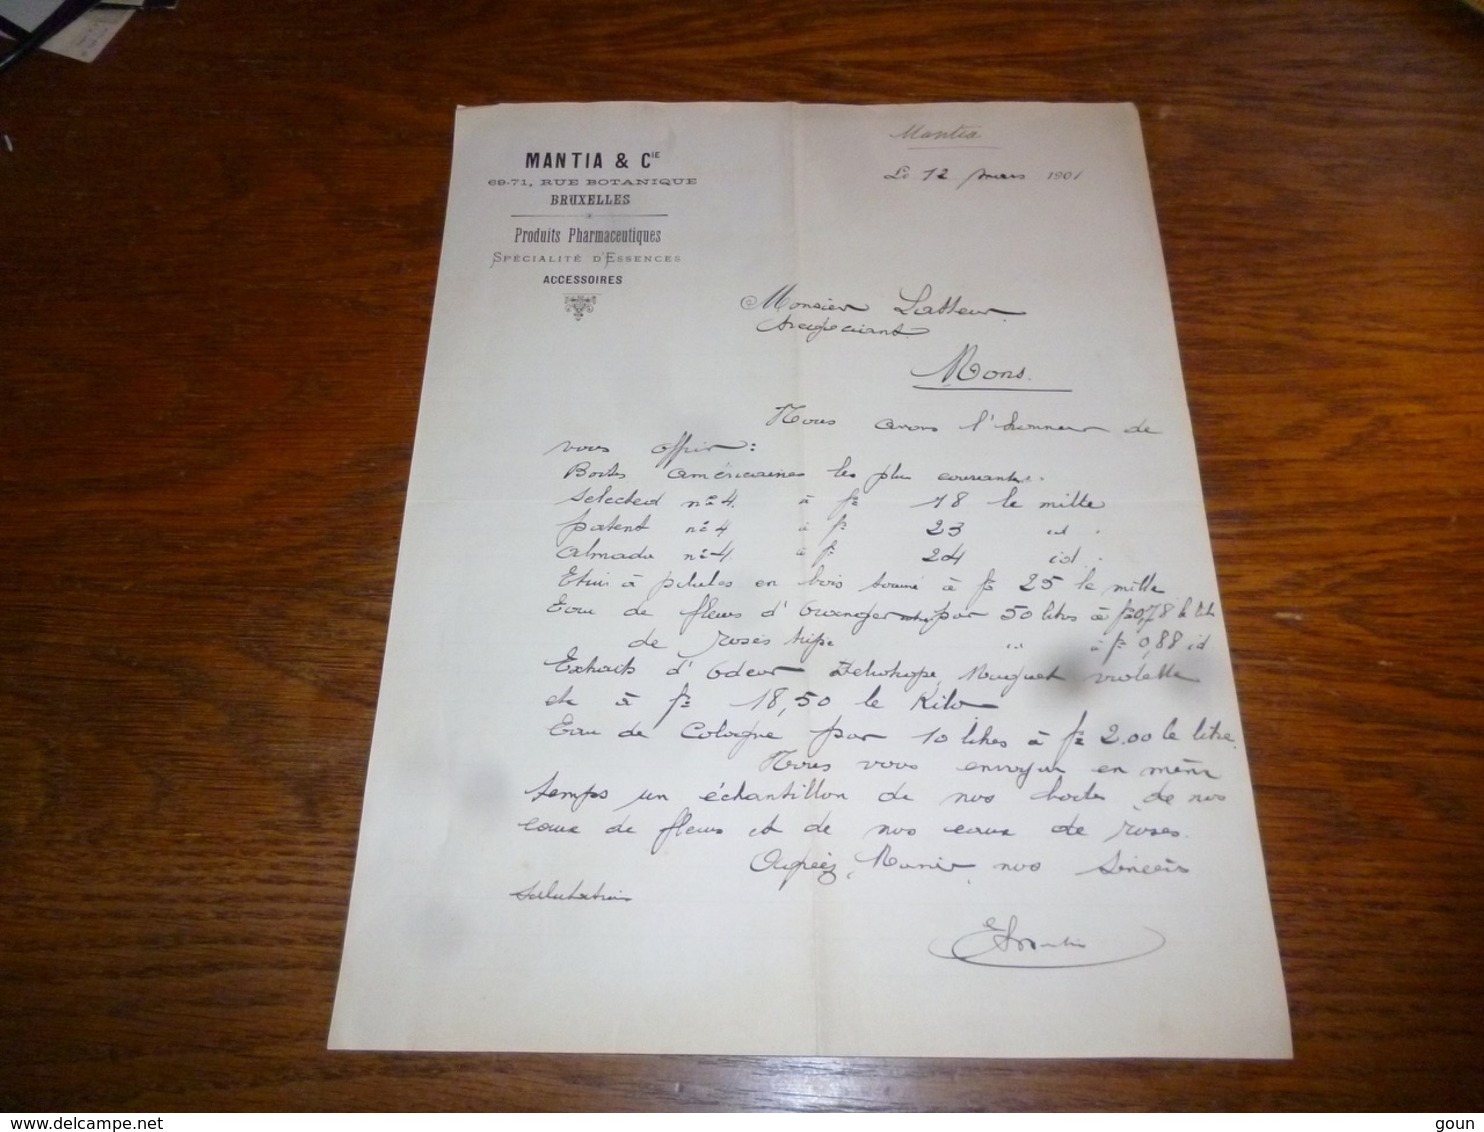 MANTIA & CIE
69-71, RUE BOTANIQUE
BRUXELLES
Produits Pharmaceutiques
SPÉCIALITÉ D'ESSENCES
ACCESSOIRES
Mantia
Le 12 mars 1901
Monsieur
Mons.
Nous avons l'honneur de
vous offrir :
Boites américaines les plus courantes.
Selected n° 4. à fr 18 le mille
patent n° 4 à fr 23 id.
n° 4. à fr 24 id.
Etui à pilules en bois tourné à fr 25 le mille
Eau de fleurs d'Oranger par 50 litres à fr 0,78 le litre
de roses id à fr 0,88 id
Extraits d'Odeur Muguet violette
etc à fr 18,50 le Kilo
Eau de Cologne par 10 litres à fr 2.00 le litre.
Nous vous envoyons en même
temps un échantillon de nos boites, de nos
eaux de fleurs et de nos eaux de roses.
Agréez, nos sincères
salutations
delcampe.net
goun